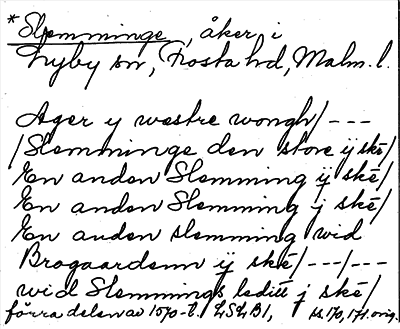 *Slemminge, åker i
Lyby sn, Frosta hd, Malm. l.
Ager y westre wongh/---
/Slemminge den store ij ské/
En anden Slemming ij ské/
En anden Slemming j ské/
En anden slemming wid
Brogaardenn ij ské/---/---
wid Slemmings leditt j ské/
förra delen av 1570-t. LSLB1, ss 170, 171. orig.